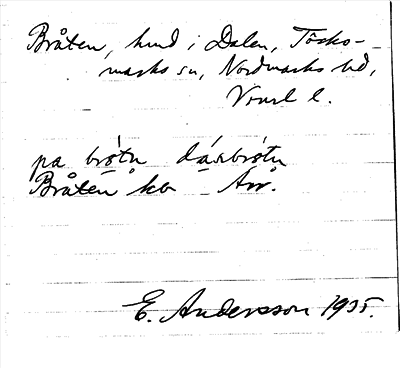 Bråten, hmd i Dalen, Töcks-
marks sn, Nordmarks hd,
Vrml l.
pa brǿtn dáɹbrǿtn
Bråten ko Arv.
E. Andersson 1935.